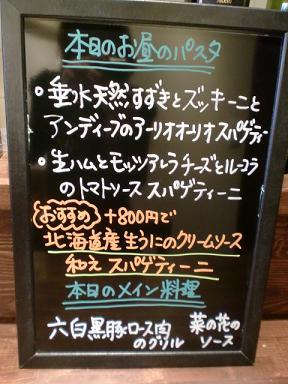 本日のお昼のパスタ
・垂水天然すずきとズッキーニと
アンディーブのアーリオオーリオスパゲティーニ
・生ハムとモッツアレラチーズとルーコラ
のトマトソース スパゲティーニ
おすすめ +800円で
北海道産生うにのクリームソース
和え スパゲティーニ
本日のメイン料理
六白黒豚ロース肉 菜の花の
のグリル ソース